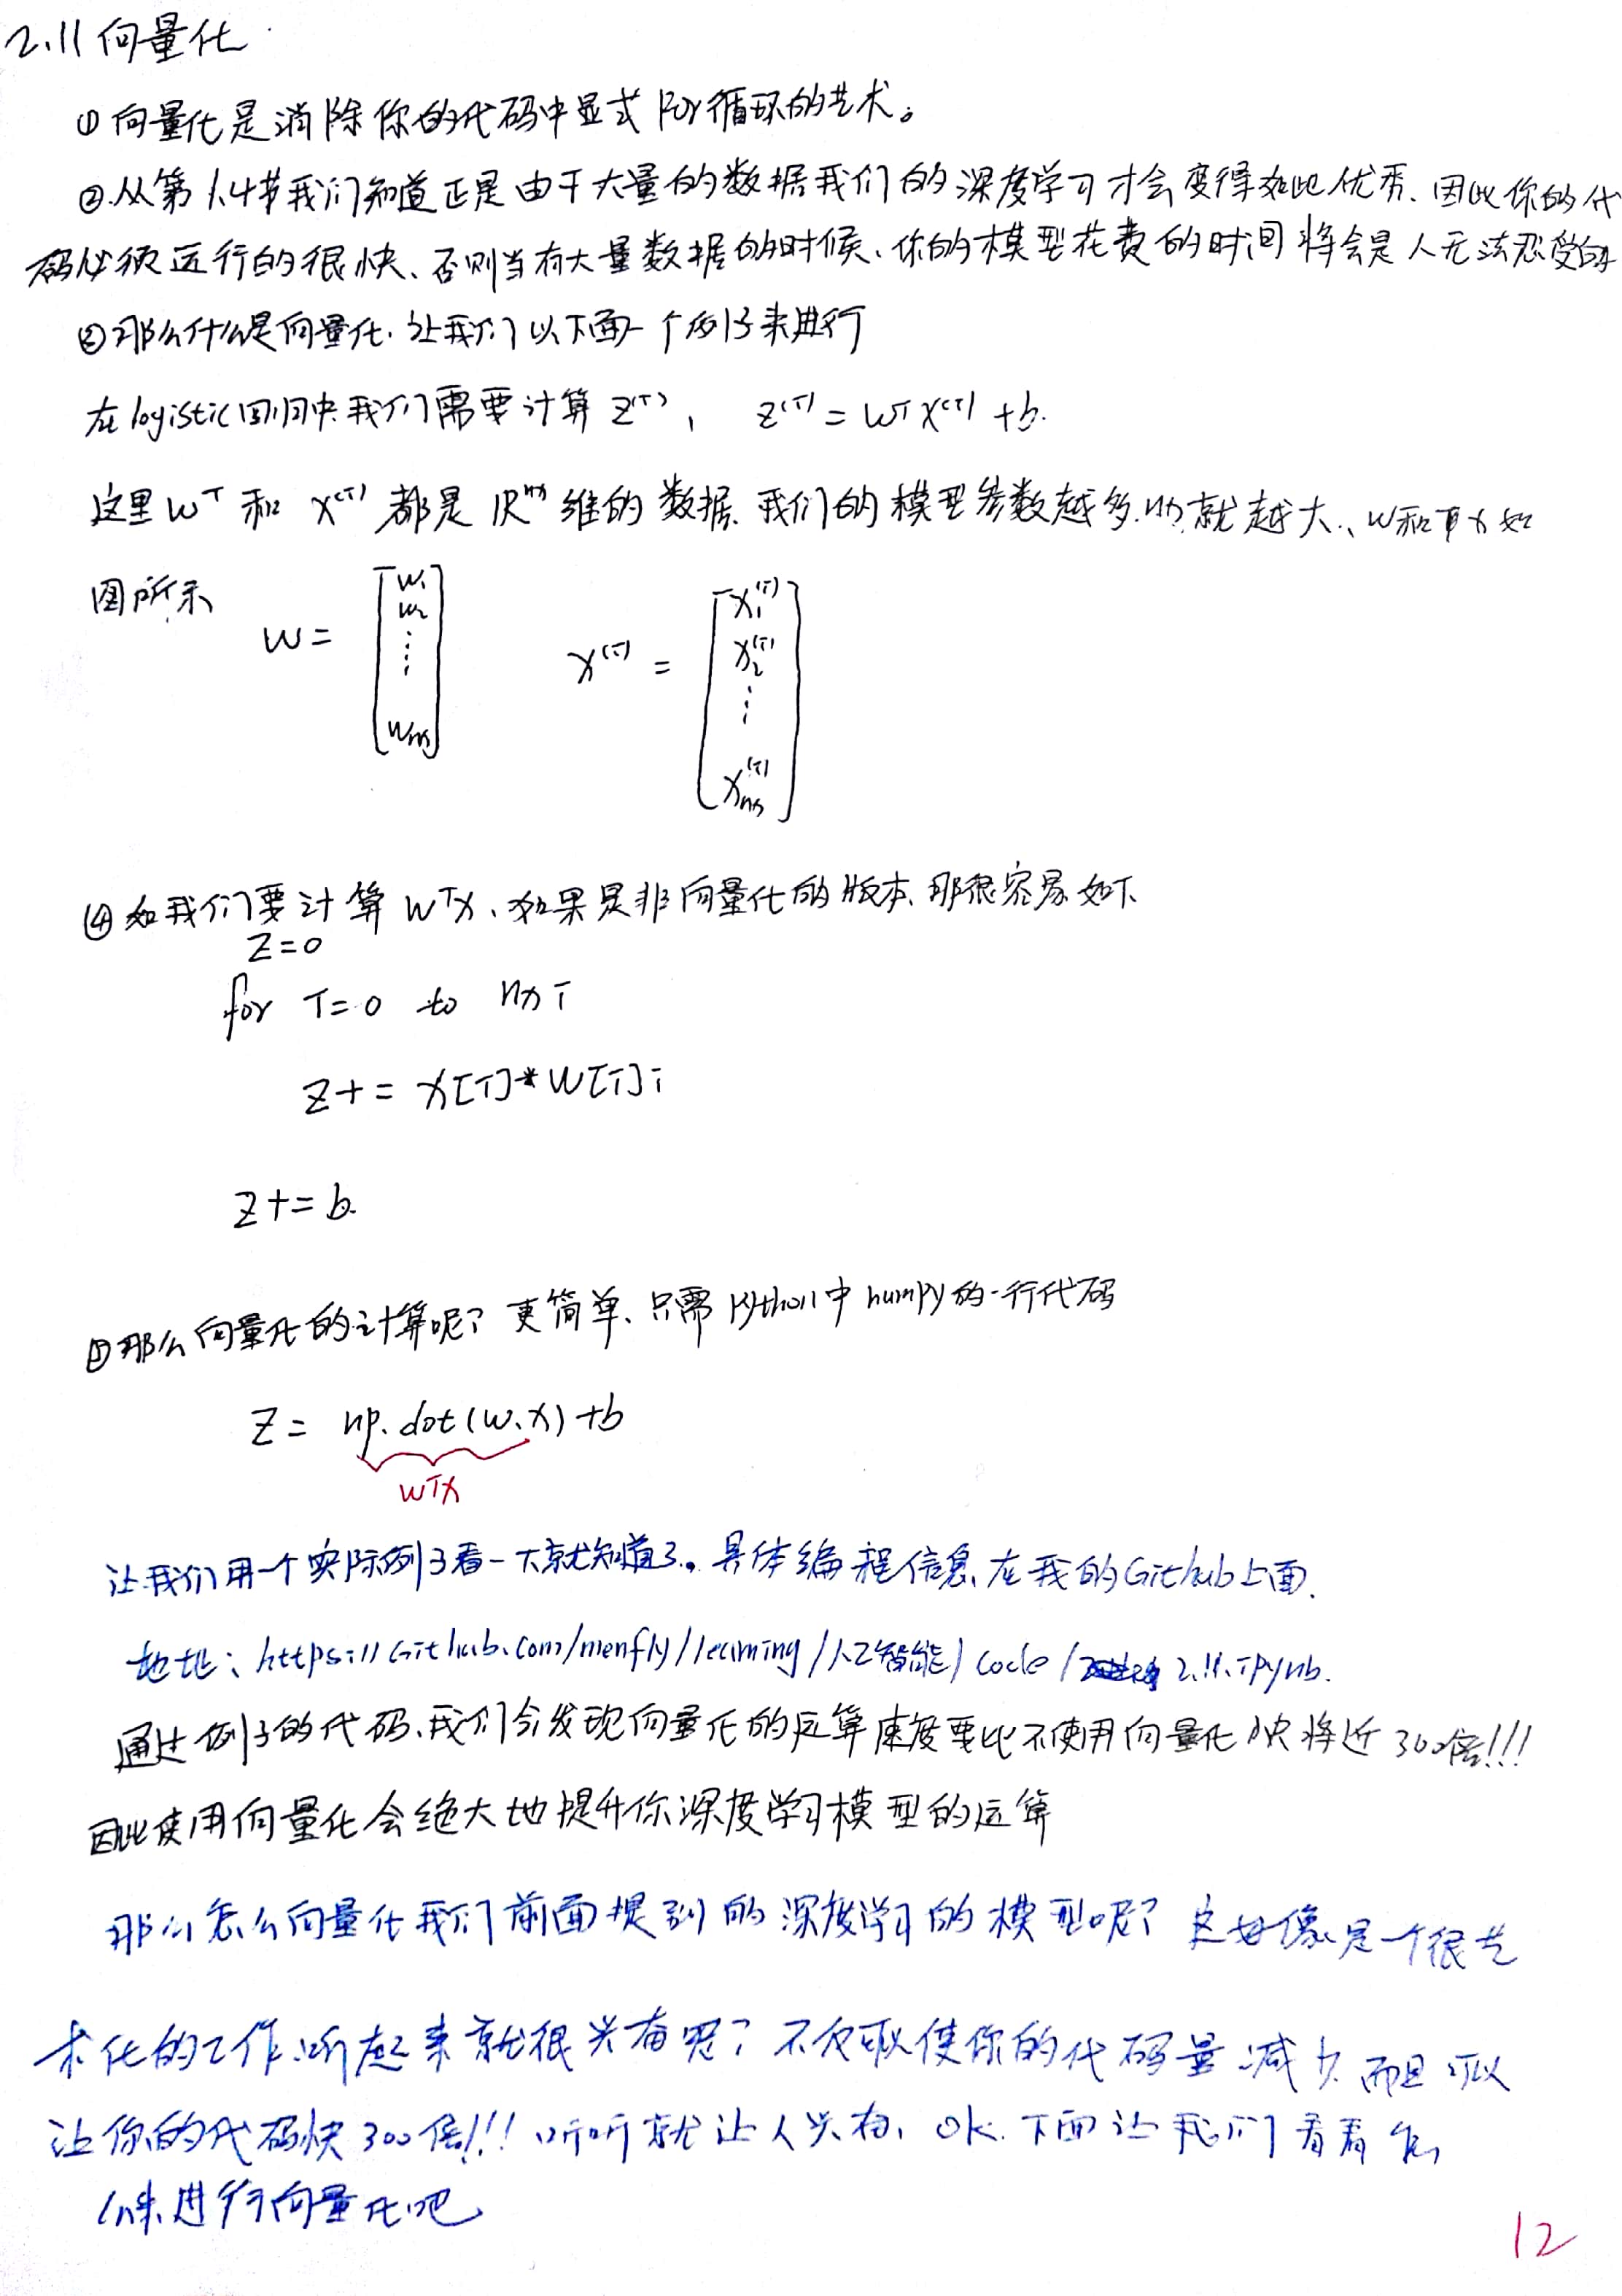 2.11 向量化
① 向量化是消除你的代码中显式 for 循环的艺术。
②.从第1.4节我们知道正是由于大量的数据我们的深度学习才会变得如此优秀.因此你的代
码必须运行的很快、否则当有大量数据的时候、你的模型花费的时间将会是人无法忍受的
③那么什么是向量化.让我们以下面一个例子来进行
在logistic回归中.我们需要计算 z⁽ⁱ⁾, z⁽ⁱ⁾ = wᵀx⁽ⁱ⁾ + b.
这里 wᵀ 和 x⁽ⁱ⁾ 都是 ℝⁿˣ 维的数据.我们的模型参数越多.nx就越大、w和 x 如
图所示
w = [w₁ w₂ ⋮ wnx] x⁽ⁱ⁾ = [x₁⁽ⁱ⁾ x₂⁽ⁱ⁾ ⋮ xnx⁽ⁱ⁾]
④ 如我们要计算 wᵀx、如果是非向量化的版本.那很容易如下
z=0
for i=0 to nx:
z += x[i]*w[i];
z += b.
那么向量化的计算呢? 更简单、只需 python中 numpy的一行代码
z = np.dot(w.x)+b
wᵀx
让我们用一个实际例子看一下就知道了。具体编程信息、在我的Github上面.
地址: https://Github.com/menfly/learning/人工智能/code/ 2.11.ipynb.
通过例子的代码、我们会发现向量化的运算速度要比不使用向量化快将近300倍!!!
因此使用向量化会绝大地提升你深度学习模型的运算
那么怎么向量化我们前面提到的深度学习的模型呢? 这好像是一个很艺
术化的工作.听起来就很兴奋呢? 不仅可以使你的代码量减少.而且可以
让你的代码快300倍!!! 听听就让人兴奋, OK.下面让我们看看怎
么来进行向量化吧
12